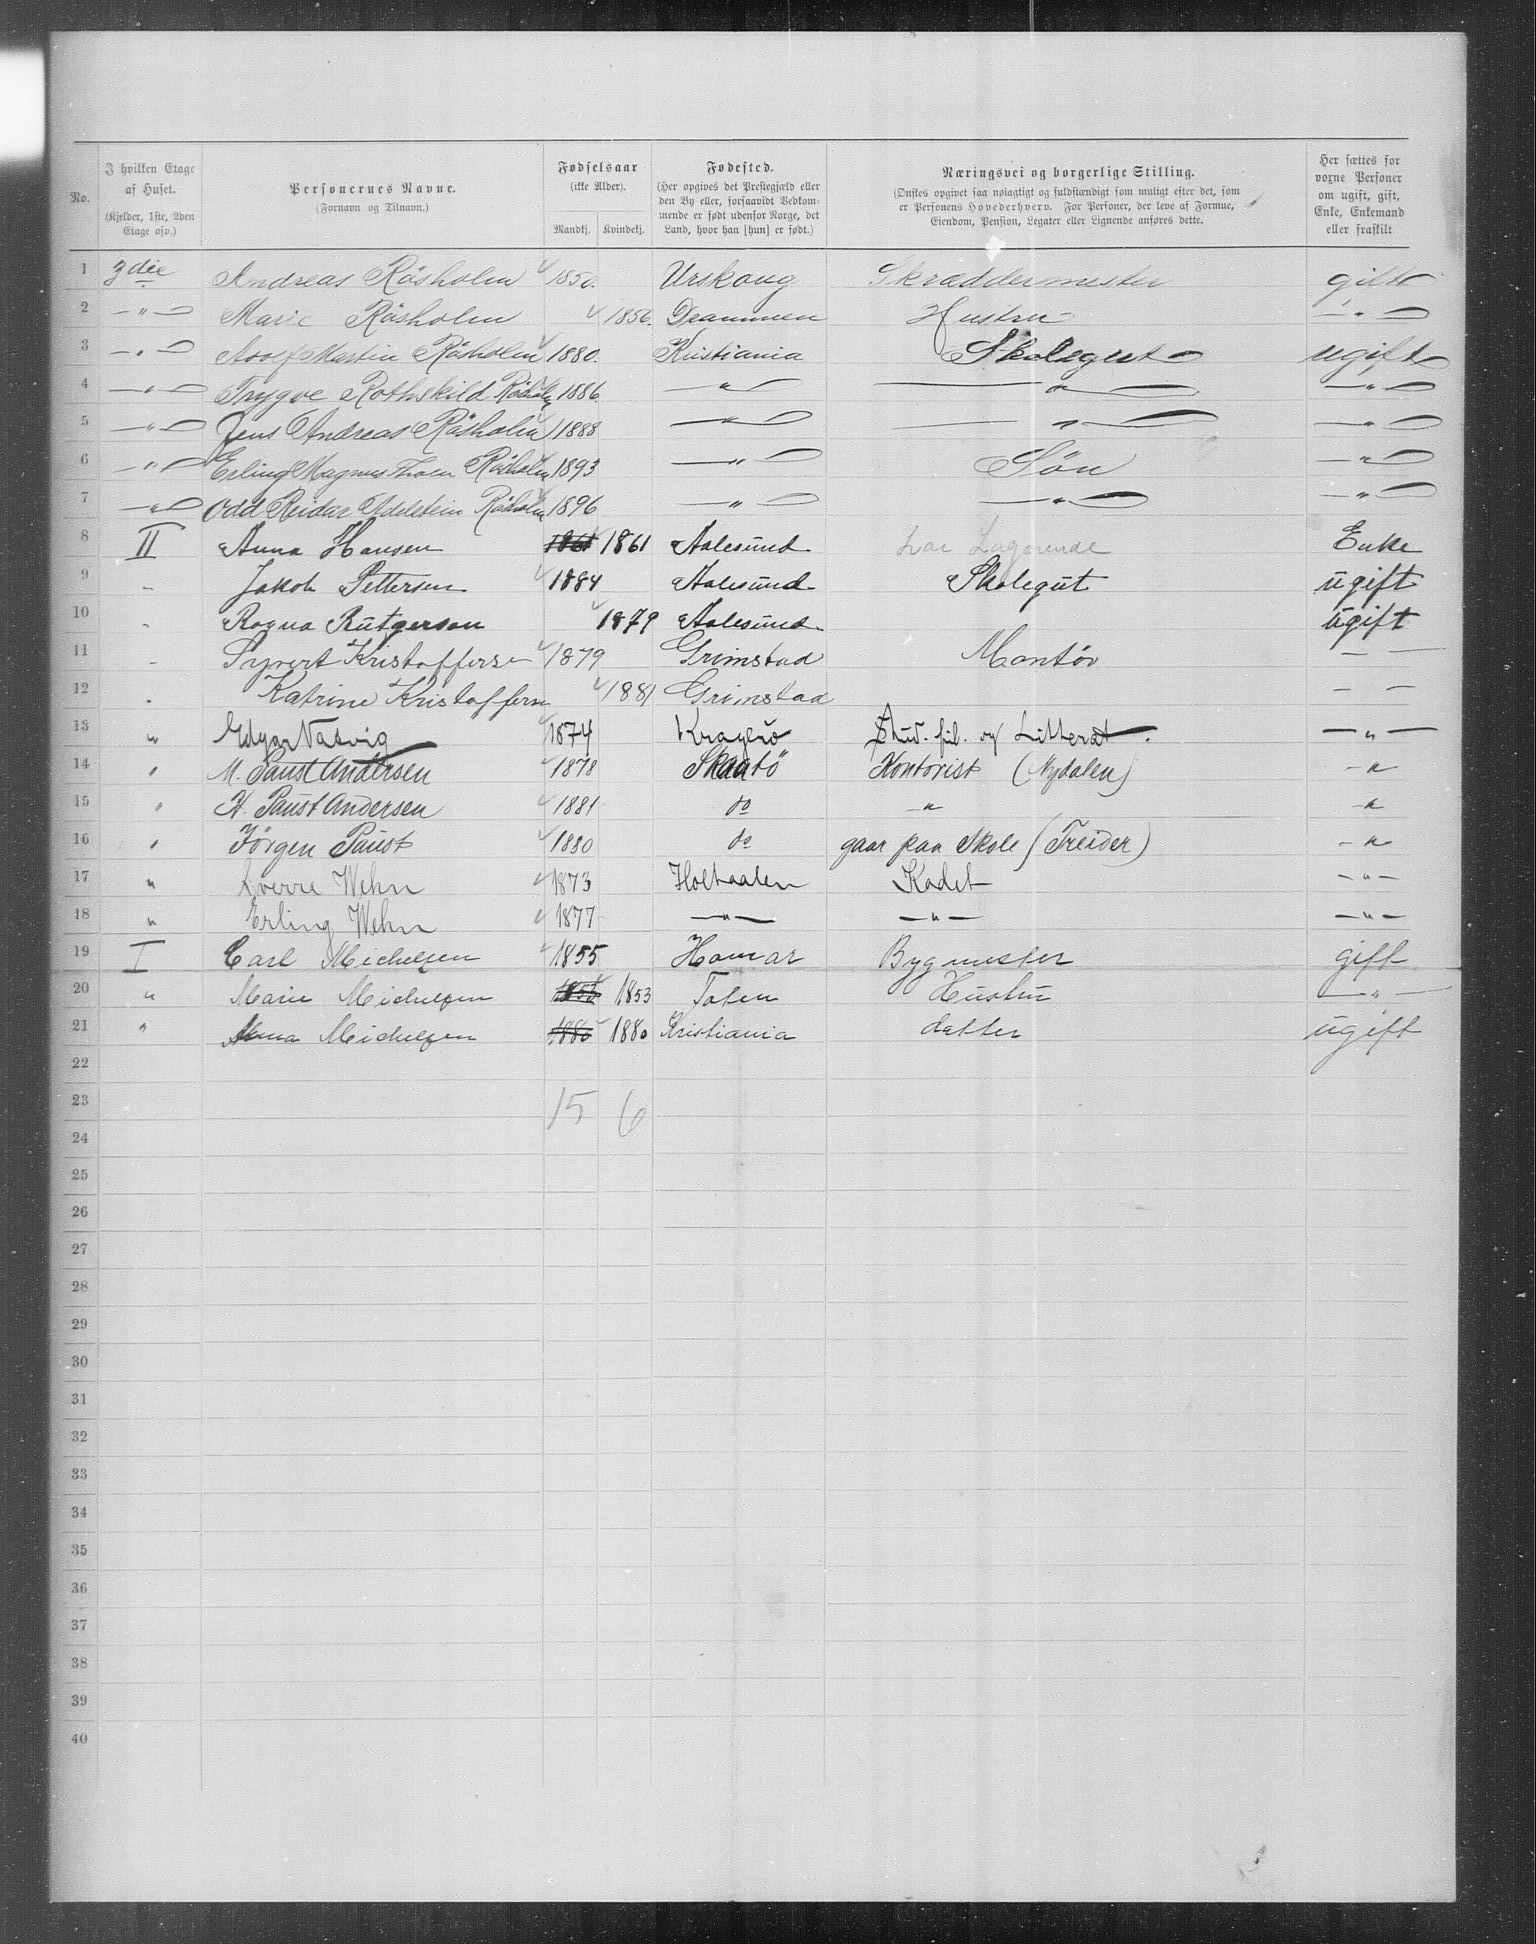 No. I hvilken Etage af Huset. (Kjelder, 1ste, 2den Etage osv.) Personernes Navne. (Fornavn og Tilnavn.) Fødselsaar (ikke Alder). Mandkj. Kvindekj. Fødested. (Her opgives det Præstegjæld eller den By eller, forsaavidt Vedkommende er født udenfor Norge, det Land, hvor han [hun] er født.) Næringsvei og borgerlige Stilling. (Ønskes opgivet saa nøiagtigt og fuldstændigt som muligt efter det, som er Personens Hovederhverv. For Personer, der leve af Formue, Eiendom, Pension, Legater eller Lignende anføres dette. Her sættes for voxne Personer om ugift, gift, Enke, Enkemand eller fraskilt.
1 3die Andreas Råsholm 1850. Urskoug Skræddermester gift
2 -"- Marie Råsholm 1856. Drammen Hustru -"-
3 -"- Adolf Martin Råsholm 1880. Kristiania Skolegut ugift
4 -"- Trygve Rothskild Råsholm 1886. -"- -"- -"-
5 -"- Jens Andreas Råsholm 1888 -"- -"- -"-
6 -"- Erling Magnus Thoen Råsholm 1893 -"- Søn -"-
7 -"- Odd Reidar Adelstein Råsholm 1896 -"- -"- -"-
8 II Anna Hansen 1861 1861 Aalesund har Logerende Enke
9 - Jakob Pettersen 1884 Aalesund Skolegut ugift
10 - Ragna Rutgerson 1879 Aalesund ugift
11 - Syvert Kristoffersen 1879 Grimstad Montør - -
12 - Katrine Kristoffersen 1881 Grimstad - -
13 " Edgar Natvig 1874 Kragerø Stud. fil. og Litterat. -"-
14 " M. Paust Andersen 1878 Skaatö Kontorist (Nydalen) -"-
15 " H. Paust Andersen 1881 do -"- -"-
16 " Jörgen Paust 1880 do gaar paa Skole (Treider) -"-
17 " Sverre Wehn 1873 Holtaalen Kadet -"-
18 " Erling Wehn 1877 -"- -"- -"-
19 I Carl Michelsen 1855 Hamar Bygmester gift
20 " Marie Michelsen 1853 1853 Toten Hustru -"-
21 " Anna Michelsen 1880 1880 Kristiania datter ugift
22
23 15 6
24
25
26
27
28
29
30
31
32
33
34
35
36
37
38
39
40